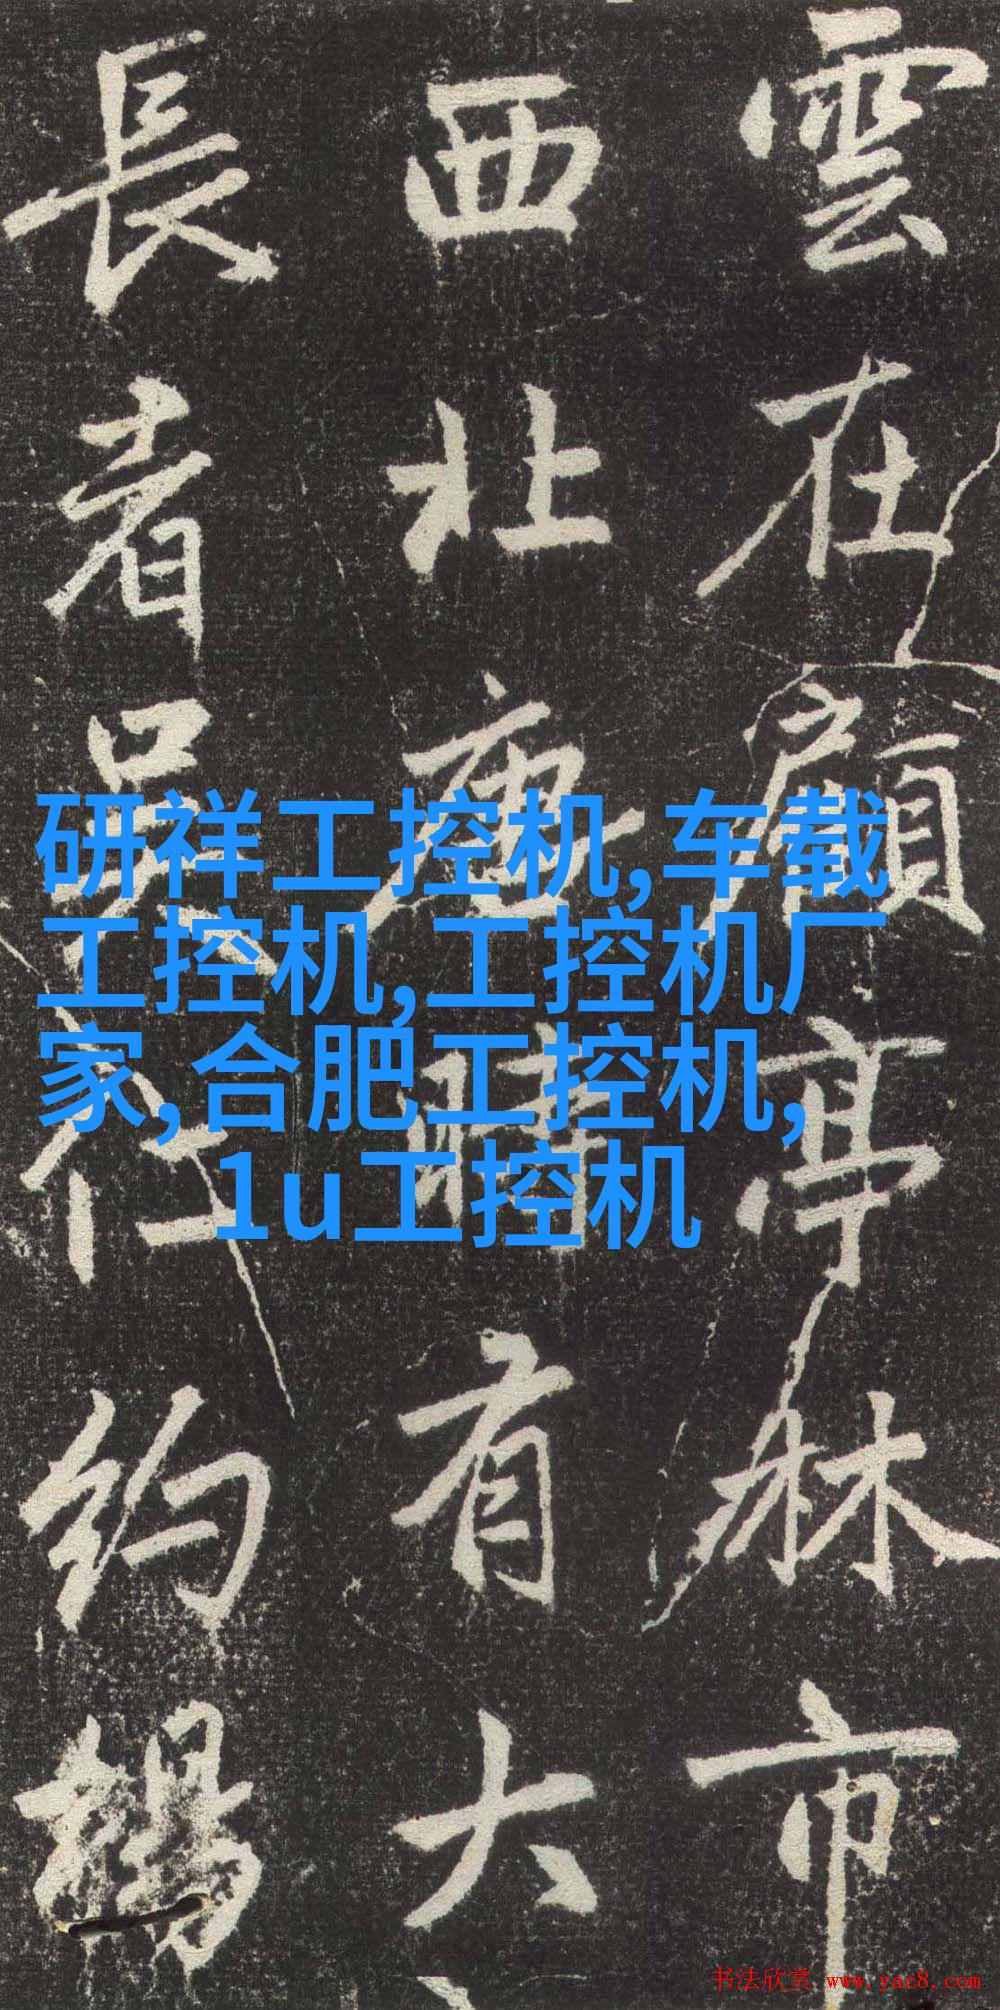 雲在顧亭林市
西北有大
長者吳約
研祥工控机,车载
工控机,工控机厂
家,合肥工控机,
1u工控机
书法欣赏 www.yac8.com